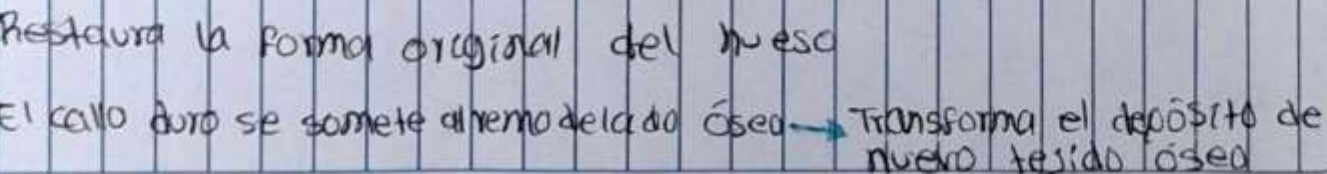 Restaura la forma original del hueso
El callo duro se somete al remodelado óseo → Transforma el depósito de
nuevo tejido óseo